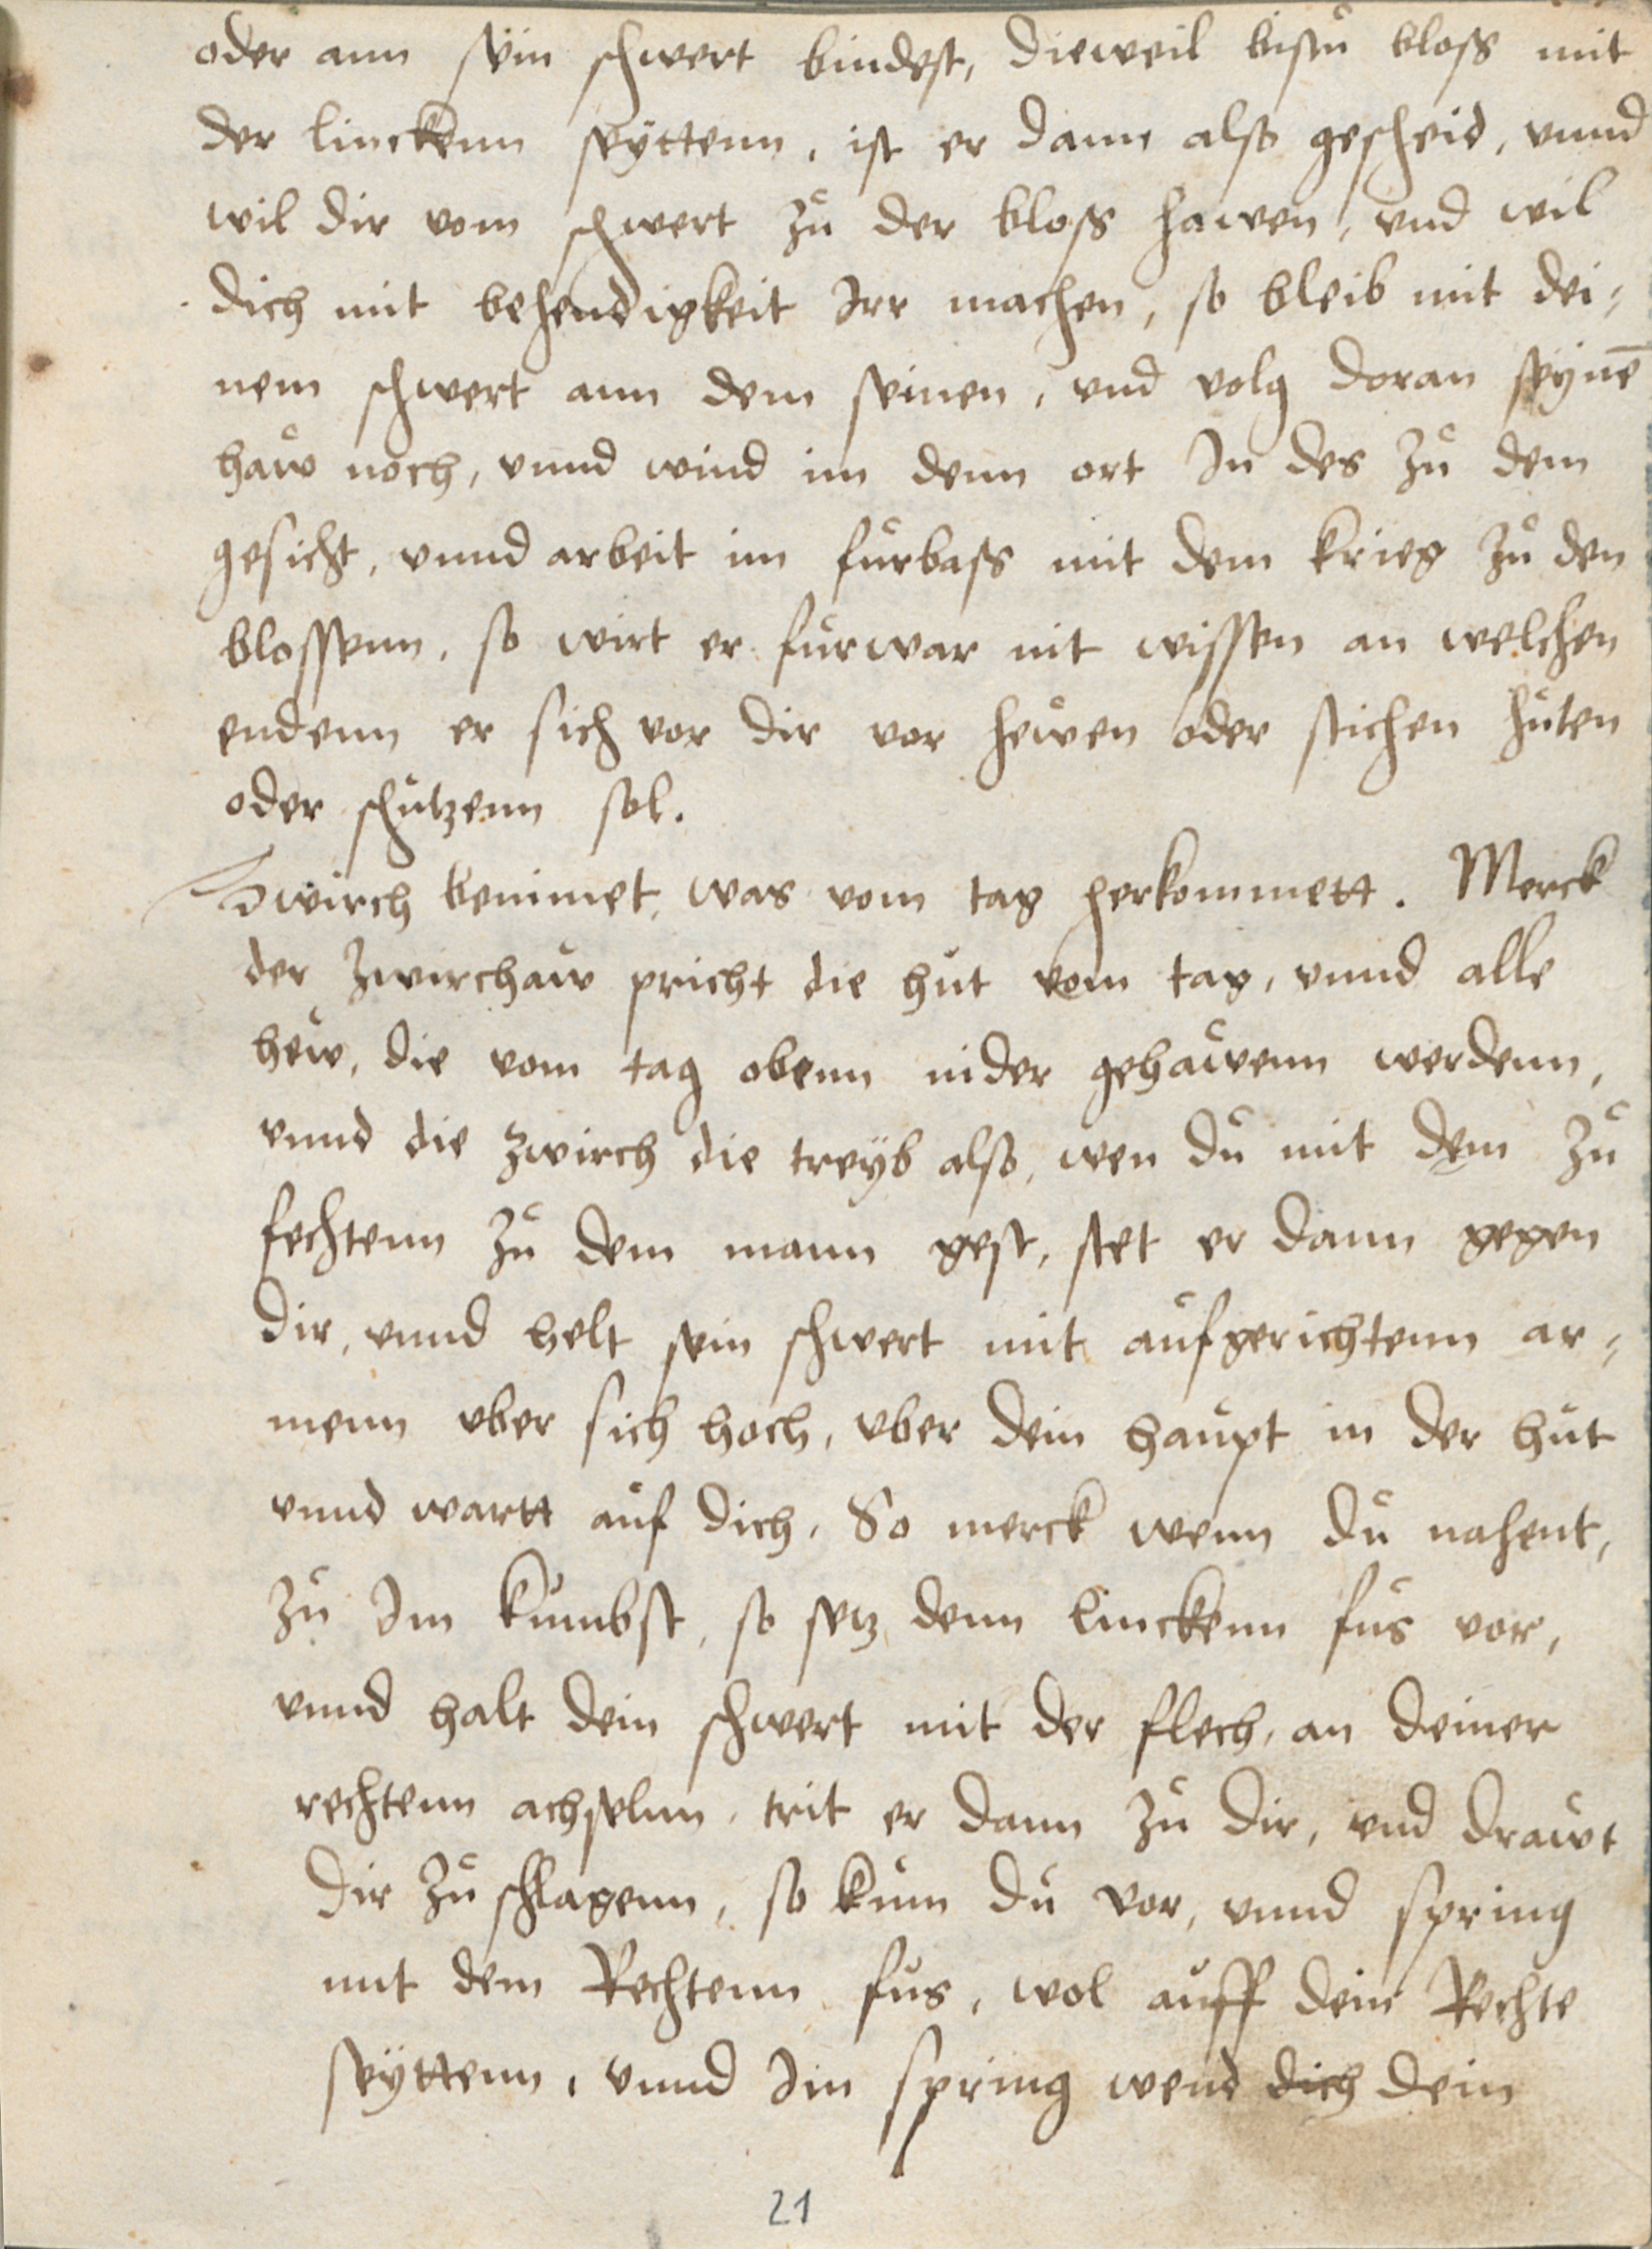 oder ann sein schwert bindest, dieweil bistu bloss mit
der linckenn seyttenn, ist er dann also gescheid, vnnd
wil dir vom schwert zů der bloss hawen, vnd wil
dich mit behendigkeit Irr machen, so bleib mit dei=
nem schwert ann dem seinen, vnd volg doran seynē
haẘ noch, vnnd wind im denn ort In des zů dem
gesicht, vnnd arbeit im fůrbass mit dem krieg zů den
blossenn, so wirt er fůrwar nit wissen an welchen
endenn er sich vor dir vor heẘen oder stichen hůten
oder schůtzenn sol.
Zwirch benimet, was vom tag herkommett. Merck
der Zwirchaẘ pricht die hůt vom tag, vnnd alle
heẘ, die vom tag obenn nider gehaẘenn werdenn,
vnnd die zwirch die treÿb also, wen dů mit dem zů
fechtenn zů dem mann gest, stet er dann gegen
dir, vnnd helt sein schwert mit aůfgerichtenn ar=
menn vber sich hoch, vber dein haůpt in der hůt
vnnd wartt aůf dich, So merck wenn dů nahent,
zů Im kůmbst, so setz denn linckenn fůs vor,
vnnd halt dein schwert mit der flech, an deiner
rechtenn achselnn, trit er dann zů dir, vnd draẘt
dir zů schlagenn, so kům dů vor, vnnd spring
mit dem Rechtenn fůs, wol aůff dein Rechte
seÿttenn, vnnd Im spring wend dich dein
21